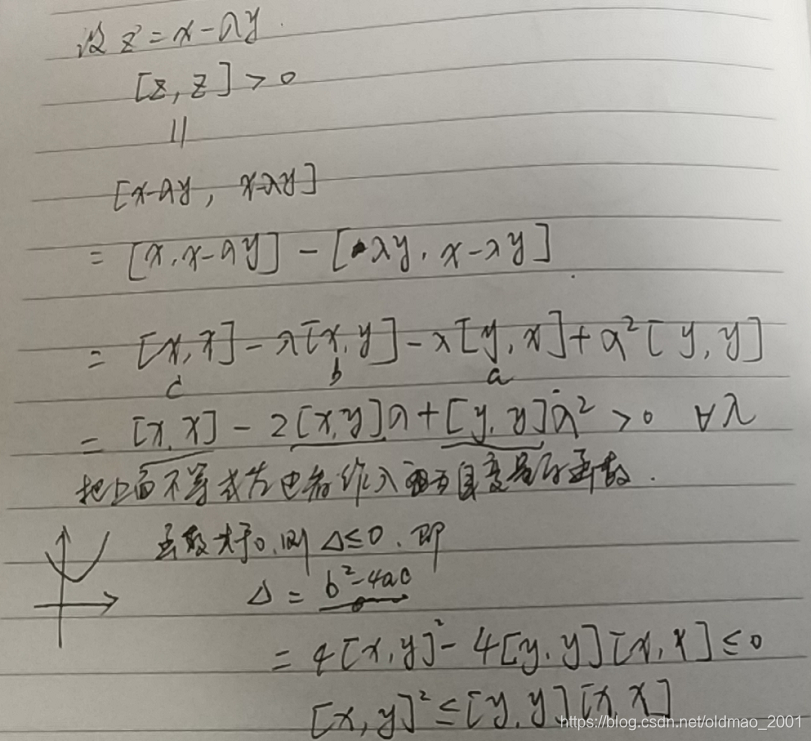 设 z = x - λy.
[z, z] > 0
||
[x-λy, x-λy]
= [x, x-λy] - [λy, x-λy]
= [x, x] - λ[x, y] - λ[y, x] + λ² [y, y]
c b a
= [x, x] - 2[x, y]λ + [y, y]λ² > 0 ∀λ
把上面不等式左边看作入为自变量的函数.
函数大于0, 则 Δ≤0. 即
Δ = b²-4ac
= 4[x, y]² - 4[y, y][x, x] ≤ 0
[x, y]² ≤ [y, y][x, x]
https://blog.csdn.net/oldmao_2001